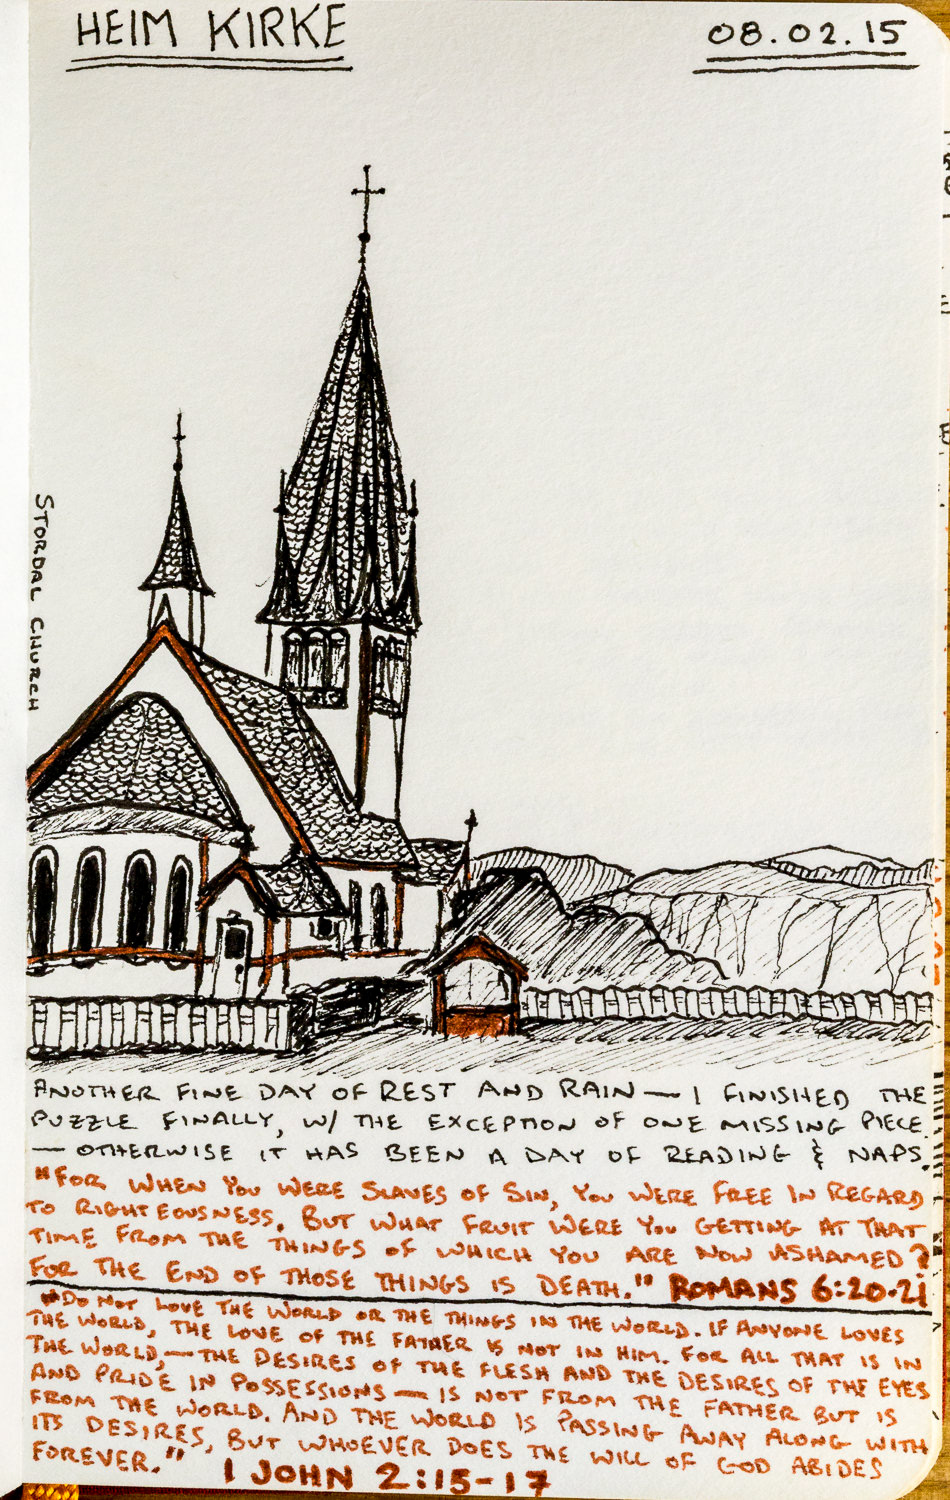 HEIM KIRKE
08.02.15
STORDAL CHURCH
ANOTHER FINE DAY OF REST AND RAIN — I FINISHED THE
PUZZLE FINALLY, W/ THE EXCEPTION OF ONE MISSING PIECE
— OTHERWISE IT HAS BEEN A DAY OF READING & NAPS.
"FOR WHEN YOU WERE SLAVES OF SIN, YOU WERE FREE IN REGARD
TO RIGHTEOUSNESS. BUT WHAT FRUIT WERE YOU GETTING AT THAT
TIME FROM THE THINGS OF WHICH YOU ARE NOW ASHAMED?
FOR THE END OF THOSE THINGS IS DEATH." ROMANS 6:20-21
"DO NOT LOVE THE WORLD OR THE THINGS IN THE WORLD. IF ANYONE LOVES
THE WORLD, THE LOVE OF THE FATHER IS NOT IN HIM. FOR ALL THAT IS IN
THE WORLD, — THE DESIRES OF THE FLESH AND THE DESIRES OF THE EYES
AND PRIDE IN POSSESSIONS — IS NOT FROM THE FATHER BUT IS
FROM THE WORLD. AND THE WORLD IS PASSING AWAY ALONG WITH
ITS DESIRES, BUT WHOEVER DOES THE WILL OF GOD ABIDES
FOREVER."
1 JOHN 2:15-17